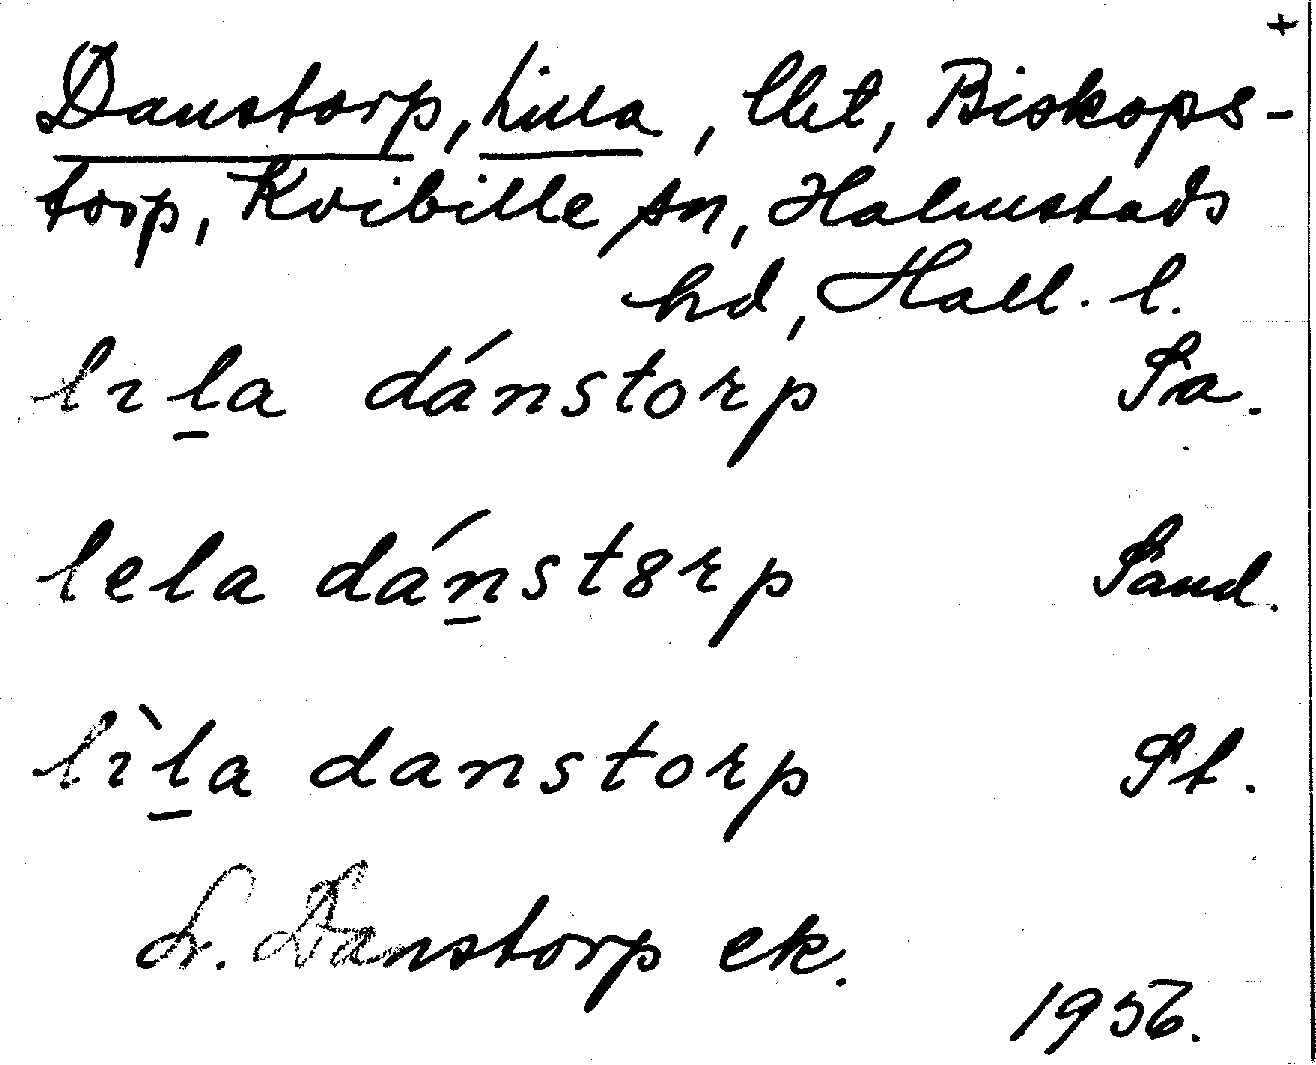 +
Danstorp, Lilla, lht, Biskops-
torp, Kvibille sn, Halmstads
hd, Hall. l.
lıl̠a dánstorp Sa.
lela dán̠st8rp Sand.
lı̀l̠a danstorp St.
Lr. Danstorp ek.
1956.